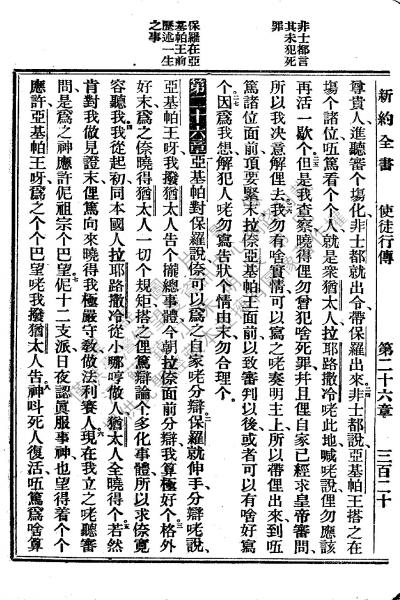 新約全書　使徒行傳　第二十六章　三百二十
非士都言
其未犯死
罪
保羅在亞
基帕王前
歷述一生
之事
尊貴人、進聽審個塲化、非士都就出令、帶保羅出來、非士都說、亞基帕王搭之在
塲個諸位、㕶篤看个个人、就是衆猶太人、拉耶路撒冷咾此地喊咾說、俚勿應該
再活一歇个、但是我查察曉得俚勿曾犯啥死罪、并且俚自家已經求皇帝審問、
所以我决意解俚去、我勿有啥實情可以寫之咾奏明主上、所以帶俚出來、到㕶
篤諸位面前、頂要緊末拉倷亞基帕王面前、以致審判以後、或者可以有啥好寫
个、因爲我想解犯人咾勿寫告狀个情由末、勿合理个、
第二十六章　亞基帕對保羅說、倷可以爲之自家咾分辯、保羅就伸手分辯咾說、
亞基帕王呀、我撥猶太人告个攏總事體、今朝拉倷面前分辯、我算極好个、格外
好末、爲之倷曉得猶太人一切个規矩、搭之俚篤辯論个多化事體、所以求倷寬
容聽我、我從起初同本國人拉耶路撒冷、從小哪哼做人、猶太人全曉得个、若然
肯對我做見證末、俚篤向來曉得我極嚴守教、做法利賽人、現在我立之咾聽審
問、是爲之神應許伲祖宗个巴望、伲十二支派、日夜認眞服事神、也望得着个个
應許、亞基帕王呀、爲之个个巴望咾我撥猶太人告、神呌死人復活、㕶篤爲啥算